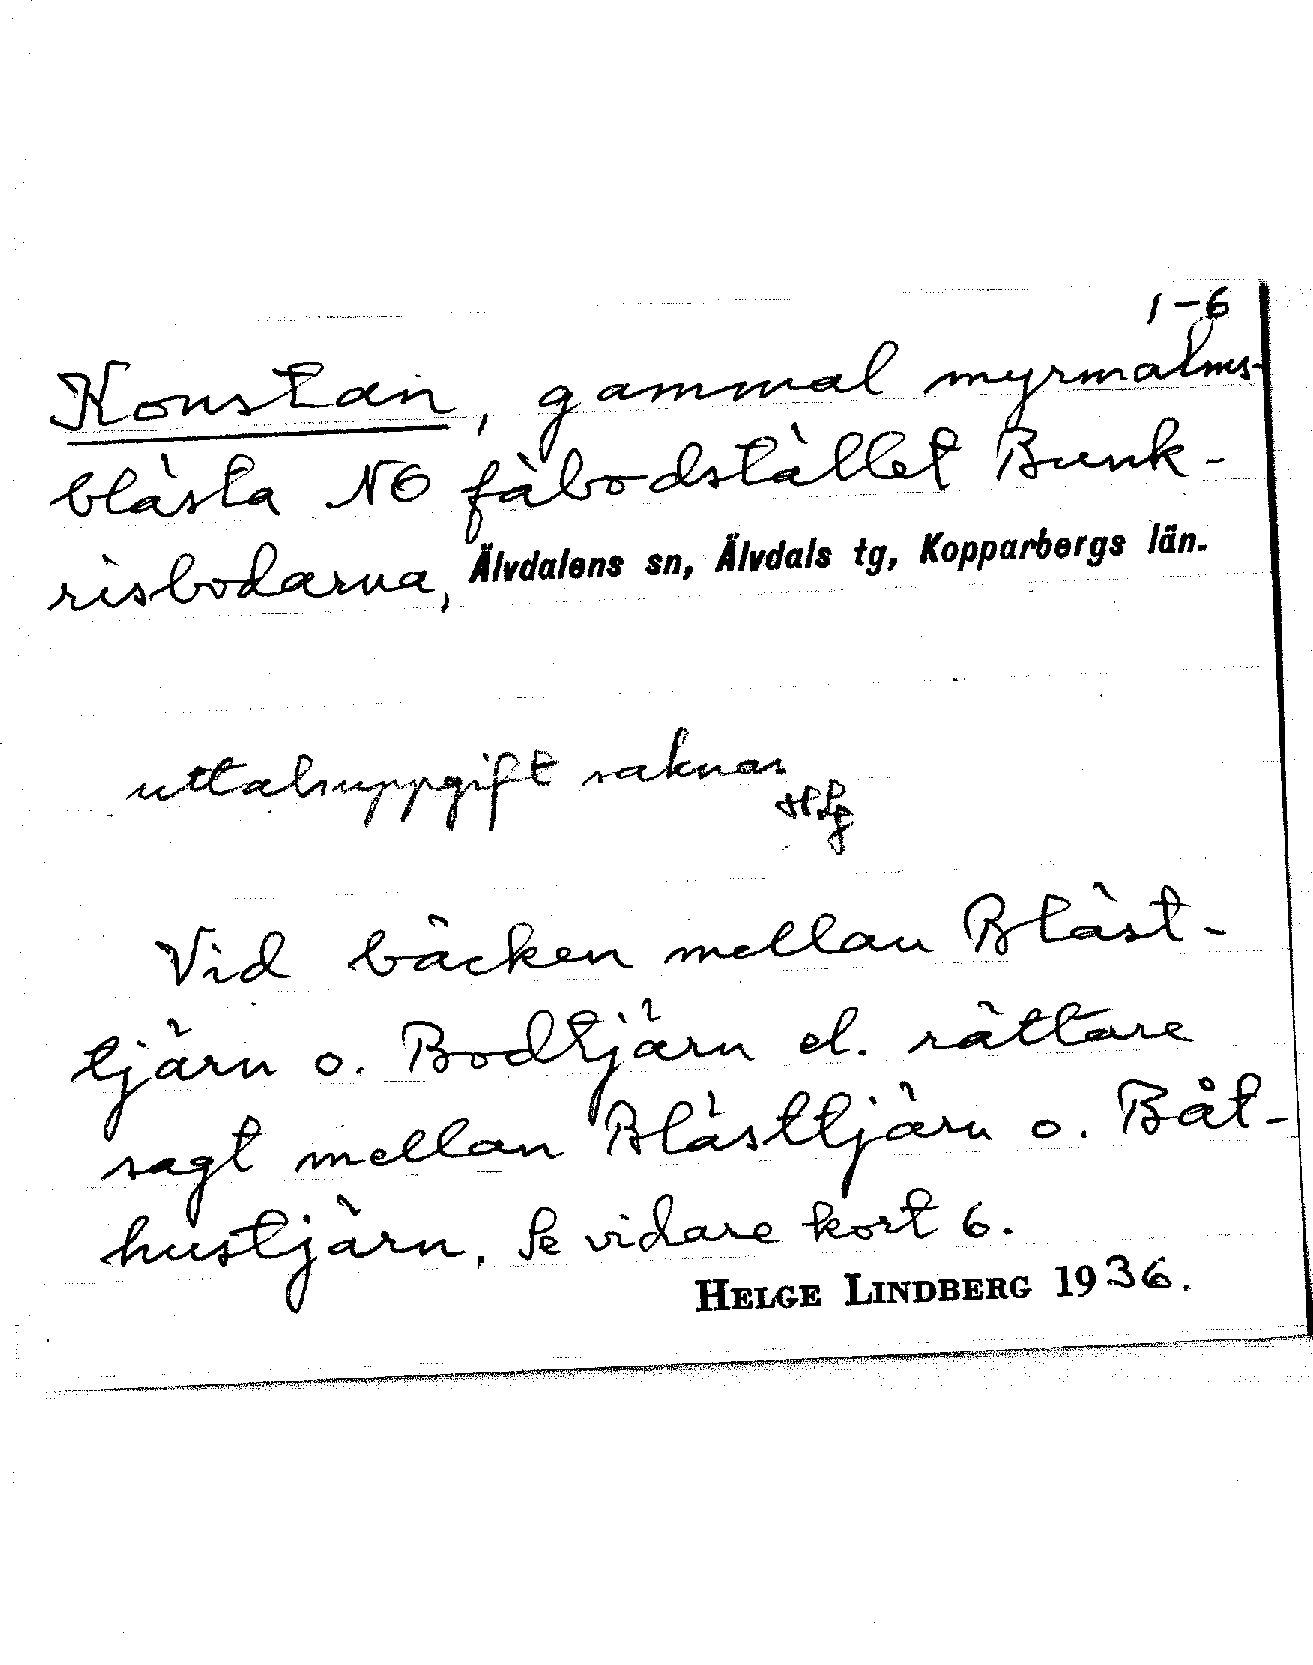 1-6
Konstan, gammal myrmalms-
blästa NO fäbodstället Bunk-
risbodarna, Älvdalens sn, Älvdals tg, Kopparbergs län.
uttalsuppgift saknas
HLg
Vid bäcken mellan Bläst-
tjärn o. Bodtjärn el. rättare
sagt mellan Blästtjärn o. Båt-
hustjärn. Se vidare kort 6.
HELGE LINDBERG 1936.